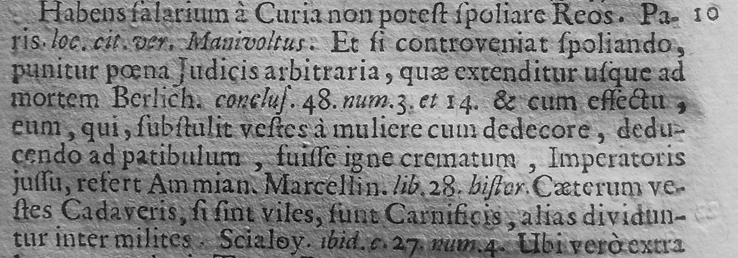 Habens salarium à Curia non potest spoliare Reos. Pa- 10
ris. loc. cit. ver. Manivoltus. Et si controveniat spoliando,
punitur pœna Judicis arbitraria, quæ extenditur usque ad
mortem Berlich. conclus. 48. num. 3. et 14. & cum effectu,
eum, qui, substulit vestes à muliere cum dedecore, dedu-
cendo ad patibulum, fuisse igne crematum, Imperatoris
jussu, refert Ammian. Marcellin. lib. 28. histor. Cæterum ve-
stes Cadaveris, si sint viles, sunt Carnificis, alias dividun-
tur inter milites. Scialoy. ibid. c. 27. num. 4. Ubi verò extra